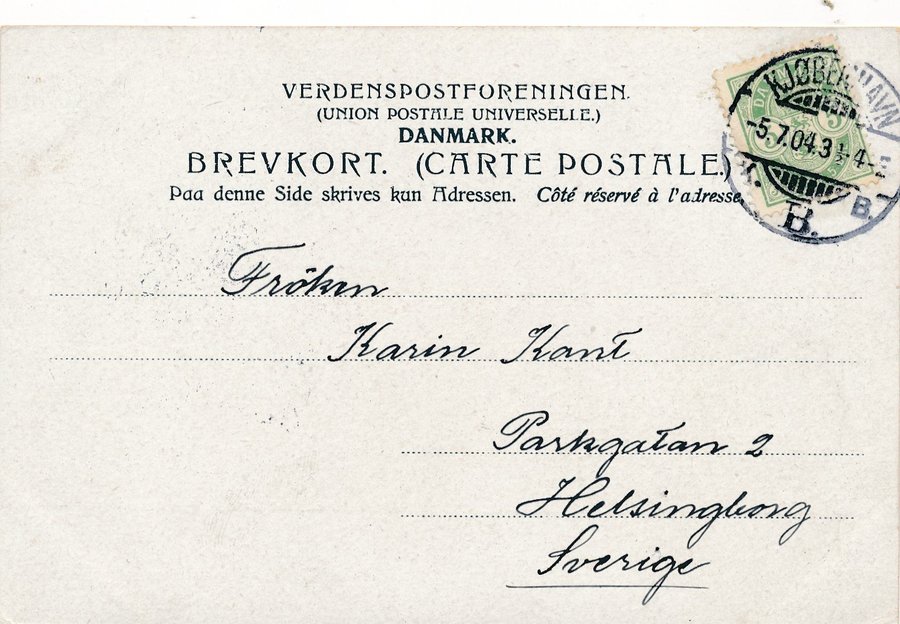 VERDENSPOSTFORENINGEN.
(UNION POSTALE UNIVERSELLE.)
DANMARK.
BREVKORT. (CARTE POSTALE.)
Paa denne Side skrives kun Adressen. Côté réservé à l'adresse
KJØBENHAVN
-5.7.04.3½-4-E
K.
B.
B.
Fröken
Karin Kant
Parkgatan 2
Helsingborg
Sverige